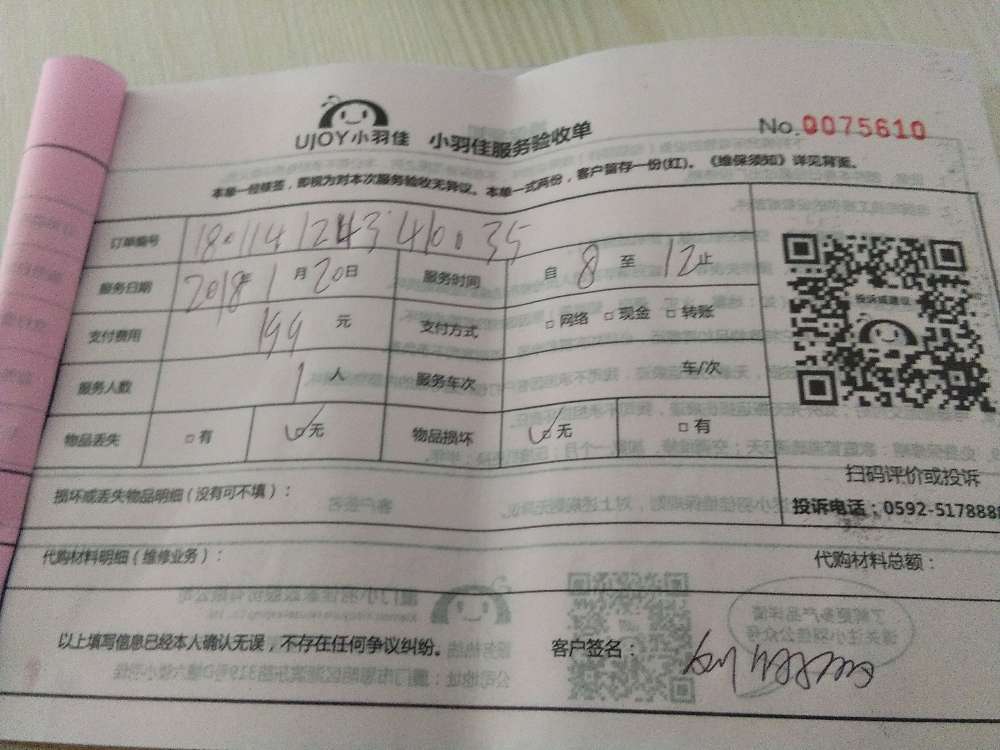 UJOY小羽佳 小羽佳服务验收单 No.0075610
本单一经核签，即视为对本次服务验收无异议。本单一式两份，客户留存一份(红)。《维保须知》详见背面。
订单编号 18011412434160035
服务日期 2018年1月20日 服务时间 自8至12止
支付费用 199元 支付方式 □网络 □现金 □转账
投诉或建议
服务人数 1人 服务车次 车/次
物品丢失 □有 ☑无 物品损坏 ☑无 □有
扫码评价或投诉
损坏或丢失物品明细（没有可不填）：
投诉电话：0592-5178888
代购材料明细（维修业务）： 代购材料总额：
以上填写信息已经本人确认无误，不存在任何争议纠纷。 客户签名：